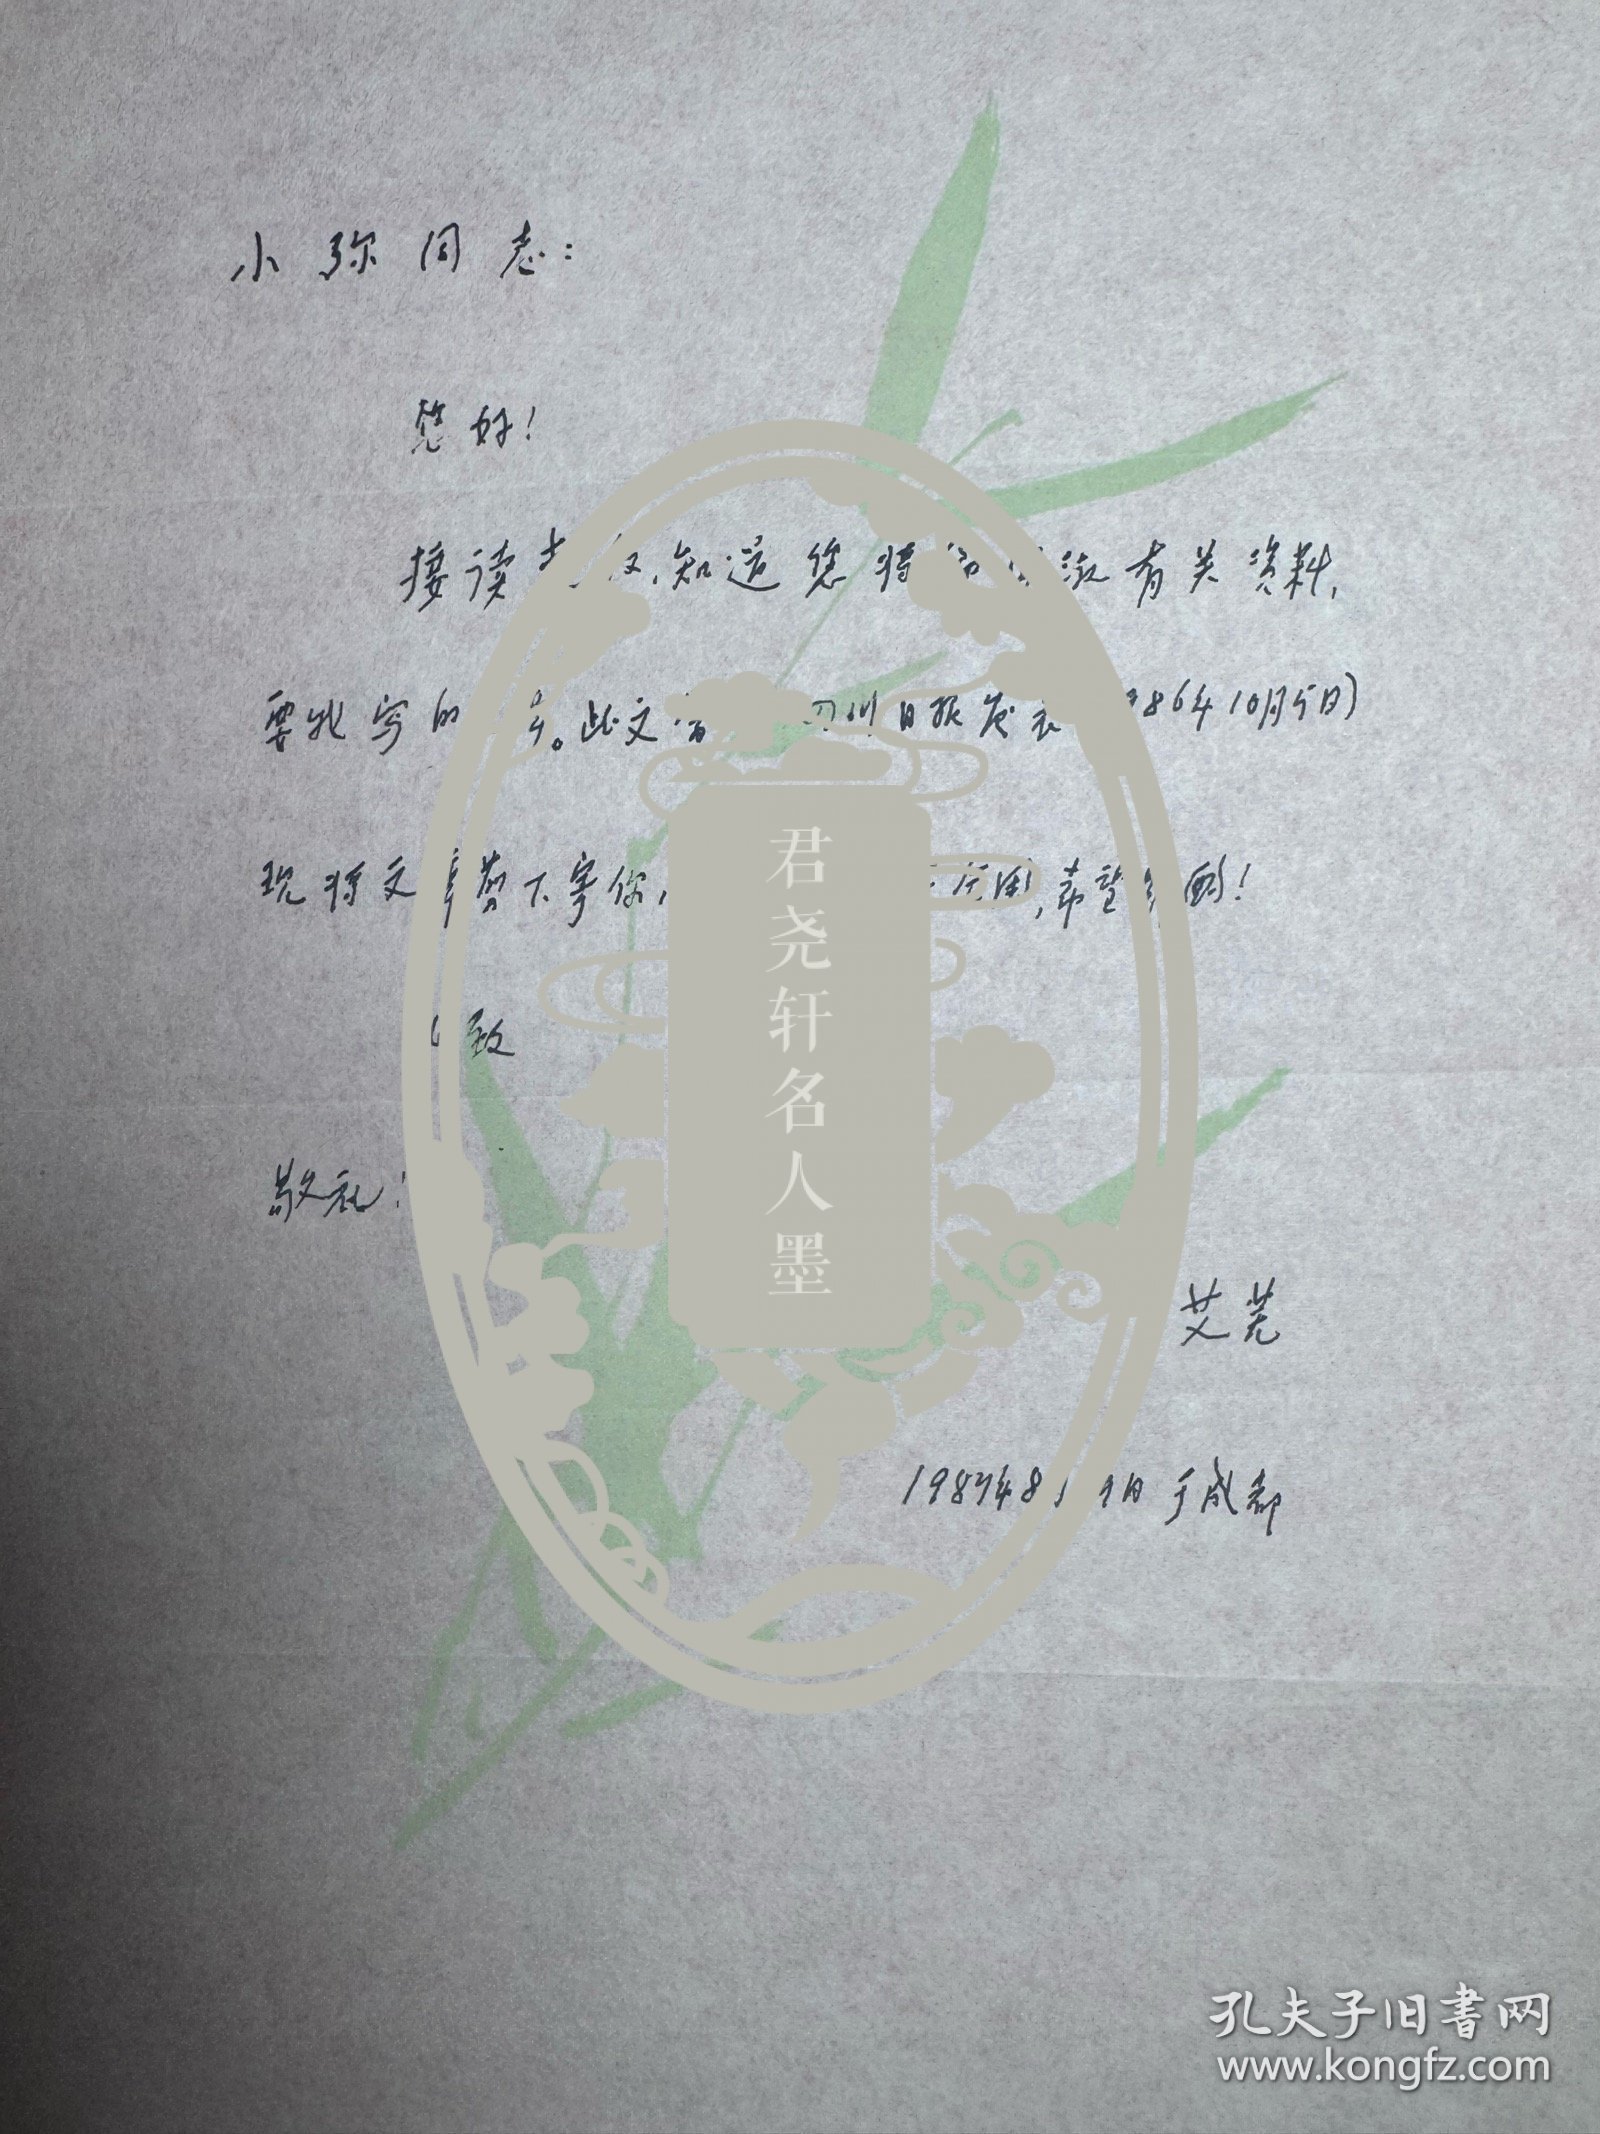 小弥同志:
您好!
接读 知道您将 有关资料,
要我写的 。此文 四川日报发表 86年10月5日)
现将文章剪下寄你, 应用,希望 酌!
致
敬礼!
艾芜
198 年8 日于成都
君尧轩名人墨
孔夫子旧书网
www.kongfz.com